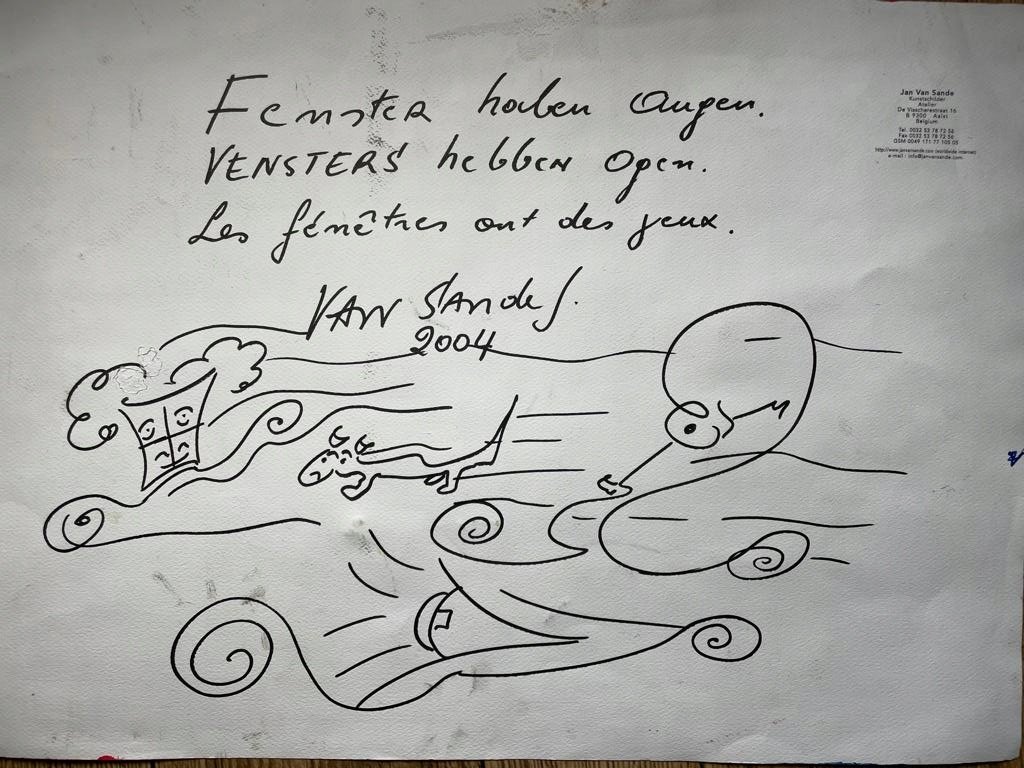 Fenster haben Augen.
VENSTERS hebben Ogen.
Les fénêtres ont des yeux.
VAN SANde J.
2004
Jan Van Sande
Kunstschilder
Atelier
De Visscherestraat 16
B 9300 Aalst
Belgium
Tel. 0032 53 78 72 56
Fax 0032 53 78 72 56
GSM 0049 171 77 105 05
http://www.janvansande.com (worldwide internet)
e-mail : info@janvansande.com